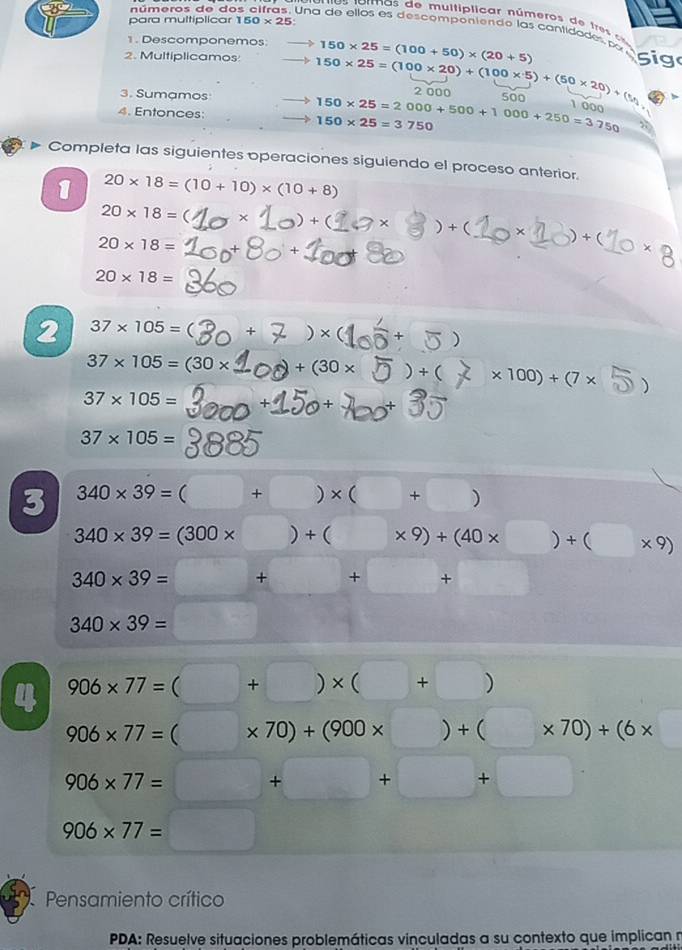 formas de multiplicar números de tres
números de dos cifras. Una de ellos es descomponiendo las cantidades, por
para multiplicar 150 × 25:
1. Descomponemos: 150 × 25 = (100 + 50) × (20 + 5)
2. Multiplicamos: 150 × 25 = (100 × 20) + (100 × 5) + (50 × 20) + (50 ×
2 000 500 1 000
3. Sumamos: 150 × 25 = 2 000 + 500 + 1 000 + 250 = 3 750
4. Entonces: 150 × 25 = 3 750
Sig
Completa las siguientes operaciones siguiendo el proceso anterior.
1 20 × 18 = (10 + 10) × (10 + 8)
20 × 18 = (10 × 10) + (10 × 8) + (10 × 10) + (10 × 8
20 × 18 = 100 + 80 + 100 + 80
20 × 18 = 360
2 37 × 105 = (30 + 7) × (100 + 5)
37 × 105 = (30 × 100) + (30 × 5) + (7 × 100) + (7 × 5)
37 × 105 = 3000 + 150 + 700 + 35
37 × 105 = 3885
3 340 × 39 = ( + ) × ( + )
340 × 39 = (300 × ) + ( × 9) + (40 × ) + ( × 9)
340 × 39 = + + +
340 × 39 =
4 906 × 77 = ( + ) × ( + )
906 × 77 = ( × 70) + (900 × ) + ( × 70) + (6 ×
906 × 77 = + + +
906 × 77 =
Pensamiento crítico
PDA: Resuelve situaciones problemáticas vinculadas a su contexto que implican